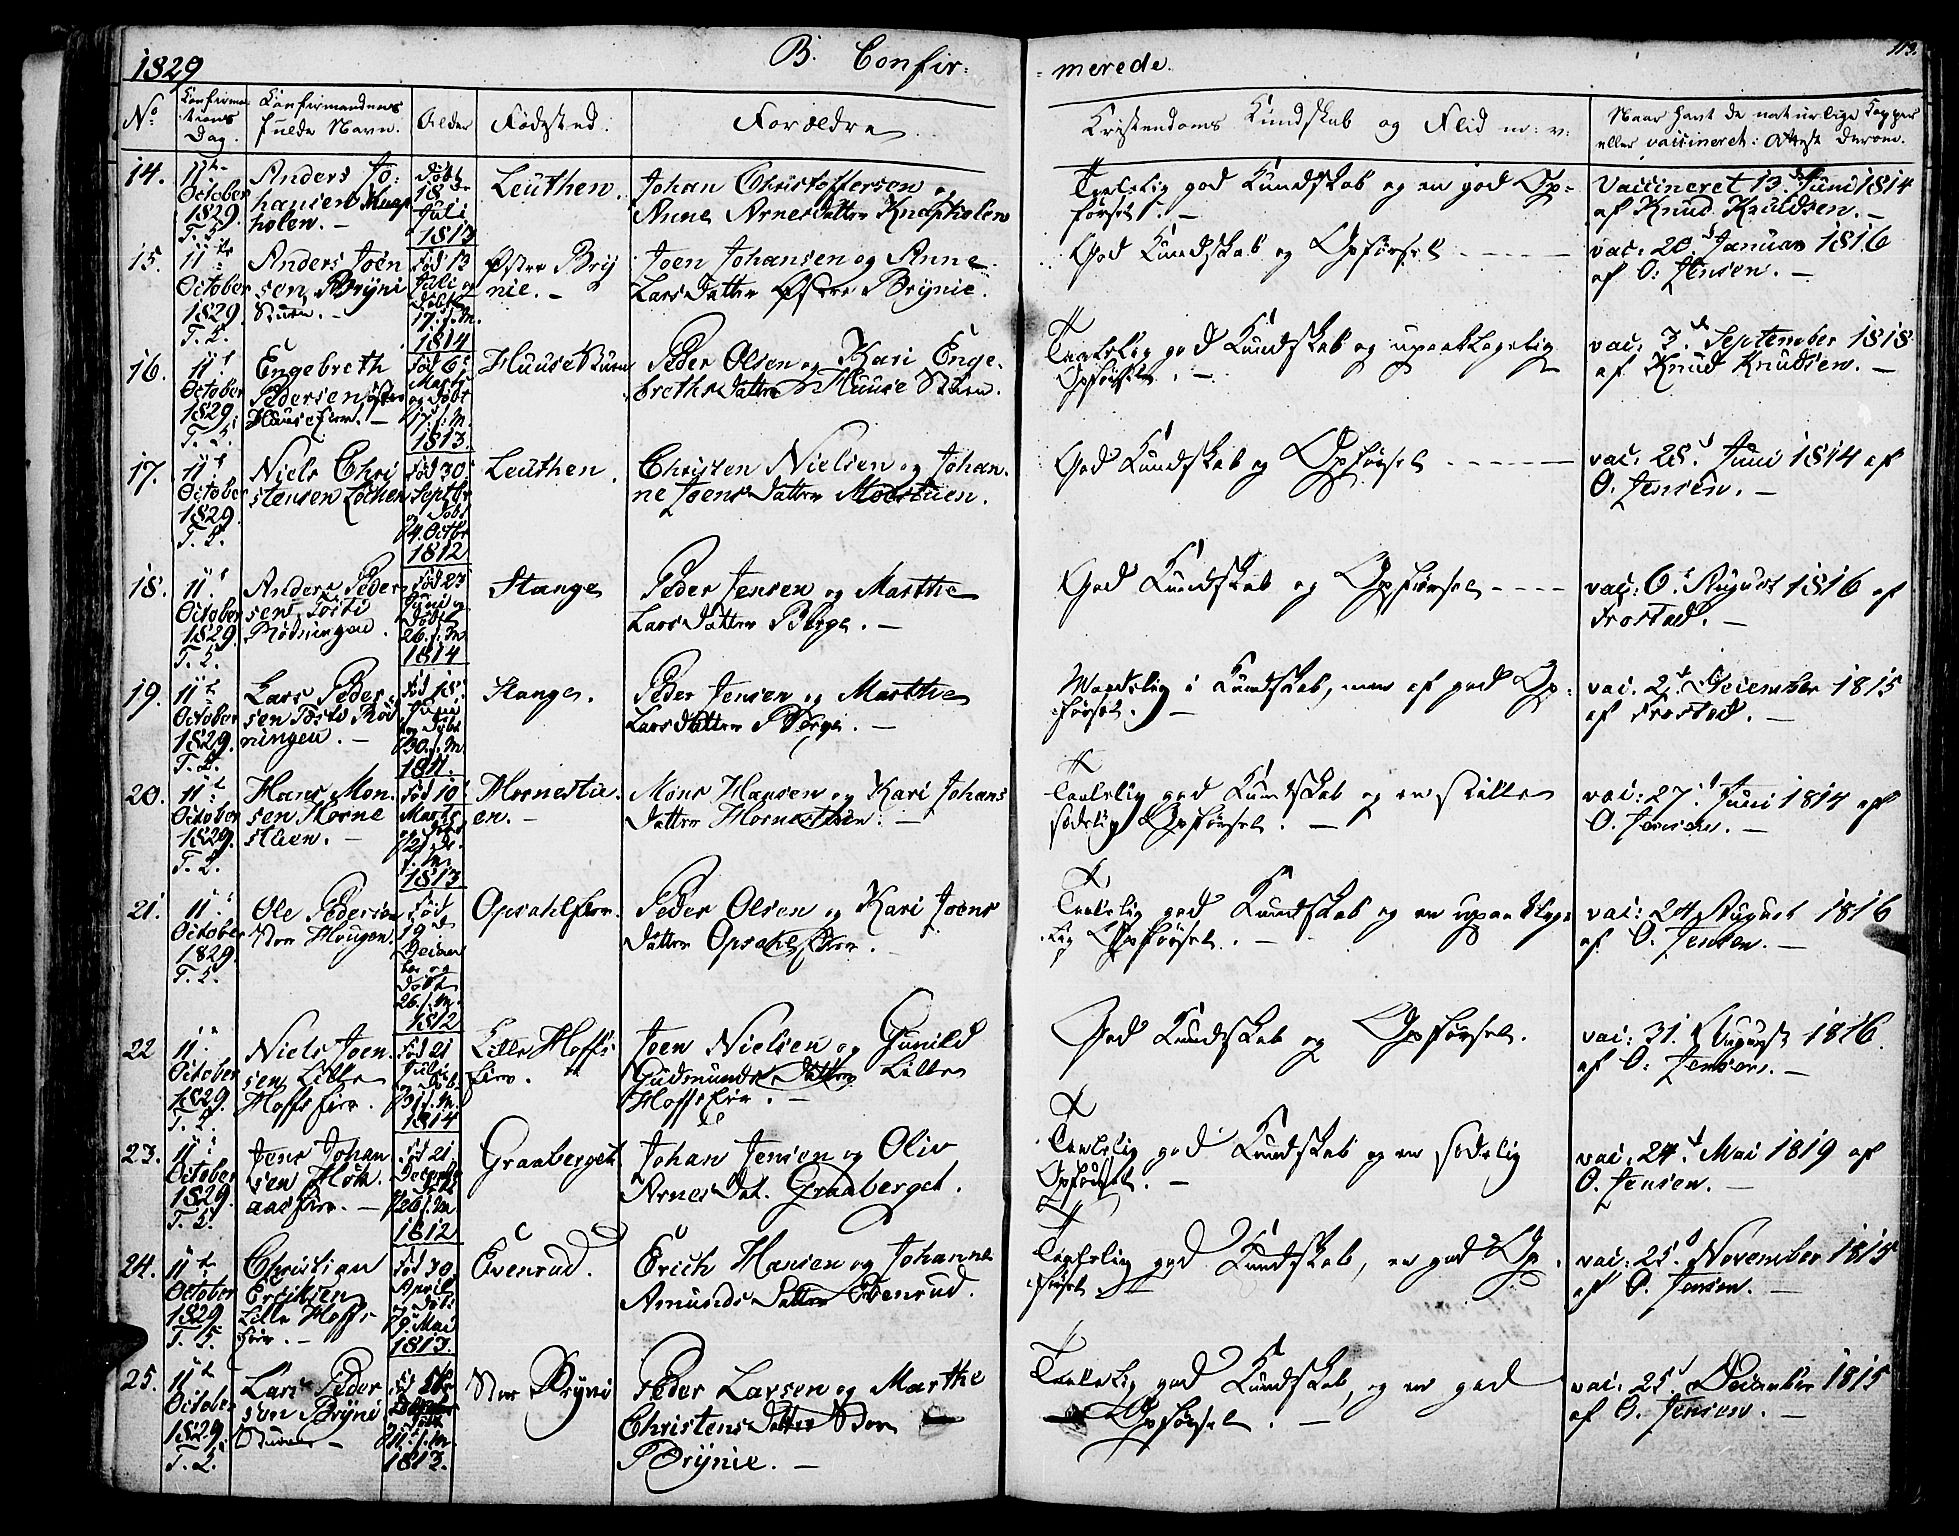 1829
B. Confir-
-merede.
113.
No.
Confirma-
tions
Dag.
Confirmandens
fulde Navn.
Alder
Fødested.
Forældre
Kristendoms Kundskab og Flid m: v:
Naar havt de naturlige Kopper
eller vaccineret: Attest derom.
14.
11te
October
1829.
T. S.
Anders Jo:
hansen Knap
holen. -
Døbt
18de
Juli
1813
Leuthen.
Johan Christoffersen og
Anne Arnesdatter Knapholen
Temlelig god Kundskab og en god Op-
førsel. -
Vaccineret 13de Juni 1814
af Knud Knudsen. -
15.
11te
October
1829.
T. S.
Anders Joen
sen Brÿni
Stuen. -
Fød 13
Juli og
døbt
17. s. M.
1814
Øster Brÿ
nie. -
Joen Johansen og Anne
Larsdatter Østre Brÿnie.
God Kundskab og Opførsel - - - - -
vac: 20d Januar 1816
af O: Jensen. -
16.
11te
October
1829.
T. S.
Engebreth
Pedersen
Huuse Eier. -
Fød 6
Marts
og døbt
17. s. M.
1813.
Huusestuen
Peder Olsen og Kari Enge-
brethsdatter Huuse Stuen.
Temlelig god Kundskab og upaaklagelig
Opførsel. -
vac: 3de September 1818
af Knud Knudsen. -
17.
11te
October
1829.
T. S.
Niels Chri
stensen Løthen
Fød 30
Septbr
og døbt
4. Octbr
1812
Leuthen.
Christen Nielsen og Johan-
ne Joensdatter Moestuen.
God Kundskab og Opførsel - - - - -
vac: 28d Juni 1814 af
O. Jensen. -
18.
11te
October
1829.
T. S.
Anders Peder
sen Tøsti
Rødningen.
Fød 23
Juni og
døbt
26. s. M
1814
Stange
Peder Jensen og Marthe
Larsdatter Berge. -
God Kundskab og Opførsel - - - -
vac: 6d August 1816 af
Frostad. -
19.
11te
October
1829.
T. S.
Lars Peder
sen Tøsti Rød
ningen. -
Fød 18
og døbt
30. s. M
1811.
Stange.
Peder Jensen og Marthe
Larsdatter Berge. -
Maadelig i Kundskab, men af god Op-
førsel. -
vac. 2d December 1815
af Frostad. -
20.
11te
October
1829.
T. S.
Hans Mon
sen Horne
stuen. -
Fød 10
Marts
og døbt
21de
s. M.
1813
Hornestu
en. -
Mons Hansen og Kari Johans
datter Hornestuen. -
Temlelig god Kundskab og en stille
sædelig Opførsel. -
vac: 27d Juni 1814 af
O. Jensen. -
21.
11te
October
1829.
T. S.
Ole Pedersen
Stor Hougen
Fød
19de
Decem
ber og
døbt
26. s. M.
1812
Opsahl Eier.
Peder Olsen og Kari Joens
datter Opsahl Eier.
Temlelig god Kundskab og en upaaklage-
lig Opførsel. -
vac: 24 August 1816
af O. Jensen. -
22
11te
October
1829.
T. S.
Niels Joen
sen Lille
Hoffs Eier.
Fød 21
Juli
og døbt
31. s. M
1814
Lille Hoffs
Eier.
Joen Nielsen og Gunild
Gudmundsdatter Lille
Hoffs Eier. -
God Kundskab og Opførsel.
vac: 31. August 1816.
af O: Jensen. -
23.
11te
October
1829.
T. S.
Jens Johan
sen
aas Eier. -
Fød 21
Decembr
26. s. M
1812
Graaberget
Johan Jensen og Oliv
Arnesdat. Graaberget.
Temlelig god Kundskab og en sædelig
Opførsel. -
vac. 24d Mai 1819 af
O. Jensen. -
24.
11te
October
1829.
T. S.
Christian
Ericksen
Lille Hoffs
Eier. -
Fød 30
April
og døbt
9. Mai
1813.
Evenrud.
Erich Hansen og Johanne
Amundsdatter Evenrud.
Temlelig god Kundskab, en god Op-
førsel. -
vac: 25d November 1815
af O. Jensen. -
25.
11te
October
1829.
T. S.
Lars Peder
sen Brÿni
Stuen -
og døbt
s. M.
1813.
Stor Brÿni
Peder Larsen og Marthe
Christensdatter Stor
Brÿnie. -
Temlelig god Kundskab, og en god
Opførsel. -
vac: 25d December 1815
af O. Jensen. -